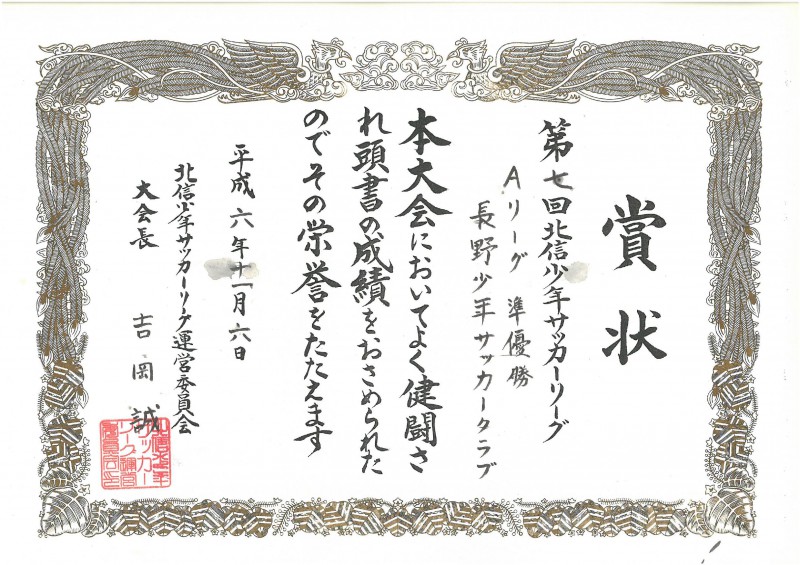 賞状
第七回北信少年サッカーリーグ
Aリーグ 準優勝
長野少年サッカータラブ
本大会においてよく健闘さ
れ頭書の成績をおさめられた
のでその栄誉をたたえます
平成六年十一月六日
北信少年サッカーリーグ運営委員会
大会長 吉岡誠
北信少年
サッカー
リーグ運営
委員会印